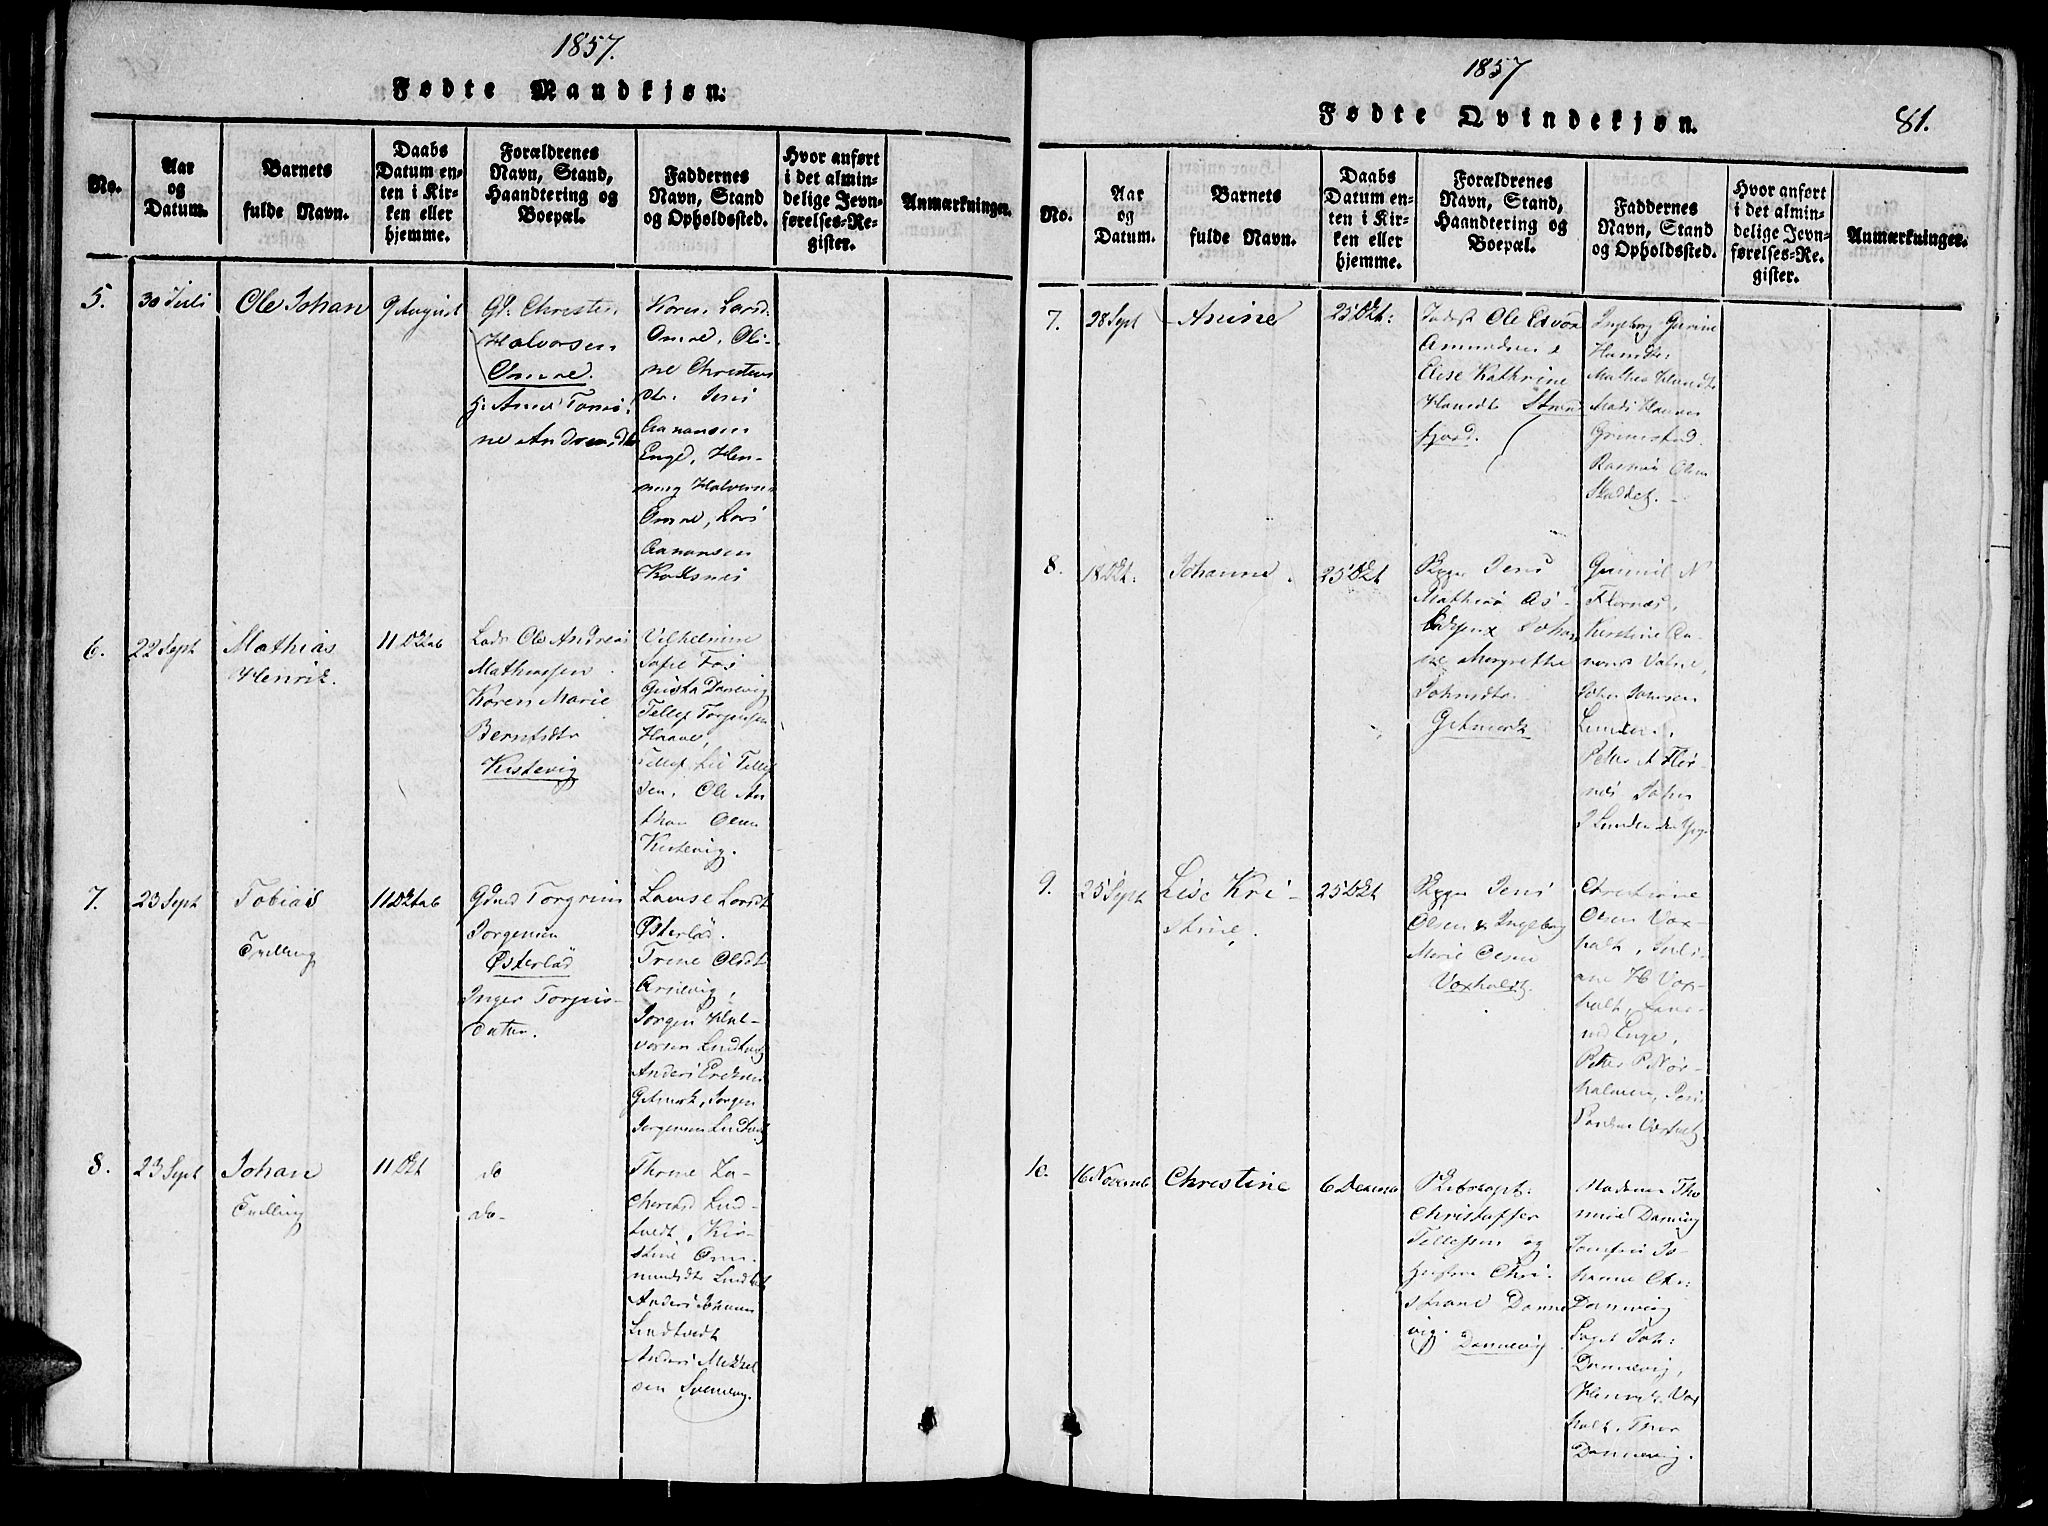 1857.
Fødte Mandkjøn:
No.
Aar
og
Datum.
Barnets
fulde Navn.
Daabs
Datum en-
ten i Kir-
ken eller
hjemme.
Forældrenes
Navn, Stand,
Haandtering og
Boepæl.
Faddernes
Navn, Stand
og Opholdssted.
Hvor anført
i det almin-
delige Jevn-
førelses-Re-
gister.
Anmærkninger.
5.
30 Juli
Ole Johan
9 August
Gd. Christen
Halvorsen
Omre.
H. Anne Tomi-
ne Andreasdtr
Karen Larsd.
Omre, Oli-
ne Christens
dtr. Jens
Aanonsen
Enge, Hen-
ning Halvors.
Omre, Lars
Aanonsen
6.
22 Sept
Mathias
Henrik.
11 Oktob
Ole Andreas
Mathiassen
Karen Marie
Berntsdtr
Kistevig
Vilhelmine
Sofie
Tellef Torgersen
Haave,
Tellef Tellef
sen, Ole An
Olsen
Kistevig.
7.
23 Sept
Tobias
Tvilling
11 Oktob
Gdmd Torgrim
Jørgensen
Østerlød
Inger Torjus-
datter.
Larsdt
Østerlød.
Trine Olsdt
Arnevig,
Jørgen Hal-
vorsen Lindtvedt
Anders Eriksen
Gitmark, Jørgen
Jørgensen Lindtvedt
8.
23 Sept
Johan
Tvilling
11 Okt
do
do-
Thrine Za-
chariasd Lind-
tvedt, Kir-
stine Om-
mundsdtr Lindtvedt
Anders Johannes
Lindtvedt
Anders Mikkel
sen Svennevig.
1857
Fødte Qvindekjøn.
81.
No.
Aar
og
Datum.
Barnets
fulde Navn.
Daabs
Datum en-
ten i Kir-
ken eller
hjemme.
Forældrenes
Navn, Stand,
Haandtering og
Boepæl.
Faddernes
Navn, Stand
og Opholdssted.
Hvor anført
i det almin-
delige Jevn-
førelses-Re-
gister.
Anmærkninger.
7.
28 Sept
Anine
25 Okt:
Ole Edvard
Amundsen &
Elise Kathrine
Hansdtr
fjord.
Ingeborg Gurine
Hansdtr
Mads Hansen
Grimstad.
Rasmus Olsen
8.
18 Okt:
Johanne.
25 Okt
Jens
Mathias As-
Johan
ne Margrethe
Johnsdtr
Gitmark
Gunnil N
Flørnes,
Kirstine Aa-
John Johnsen
Lunden.
Peter A Flør-
nes John
J Lunden den Yngr
9.
25 Sept
Lise Kri-
stine.
25 Okt
Jens
Olsen & Ingeborg
Marie Olsen
Voxholt.
Christiane
Olsen Vox-
holt, Juli-
ane H Vox-
holt,
Enge,
Peter P Nør-
holmen, Jens
Voxholt.
10.
16 Novemb
Christine
6 Decemb
Skibscapt:
Christoffer
Tellefsen og
Hustru Chri-
stiane Danne
vig.
Dannevig
Madame Tho
mine Dannevig
Jomfru Jo-
hanne Chr:
Dannevig
Joh:
Dannevig,
Henrik Vox
holt, Thor
Dannevig.